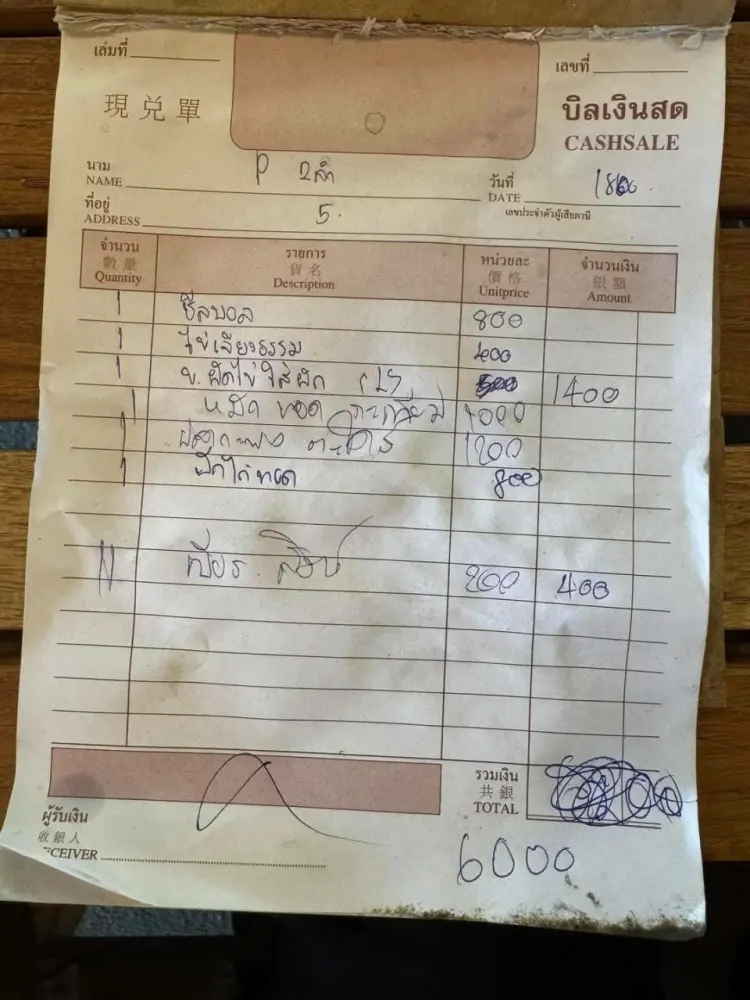 เล่มที่
เลขที่
現兑單
บิลเงินสด
CASHSALE
นาม
NAME
P 2ลำ
วันที่
DATE
ที่อยู่
ADDRESS
5.
เลขประจำตัวผู้เสียภาษี
จำนวน 數量 Quantity
รายการ 貨名 Description
หน่วยละ 價格 Unitprice
จำนวนเงิน 銀碼 Amount
1 ซีสบอล 800
1 400
1 ข. ผัดไข่ใส่ผัก 1400
1 หมึก ทอด กระเทียม 1000
1 1200
1 ทอด 800
เบียร์ สิงห์ 200 400
รวมเงิน
共銀
TOTAL
6000
ผู้รับเงิน
收銀人
CEIVER